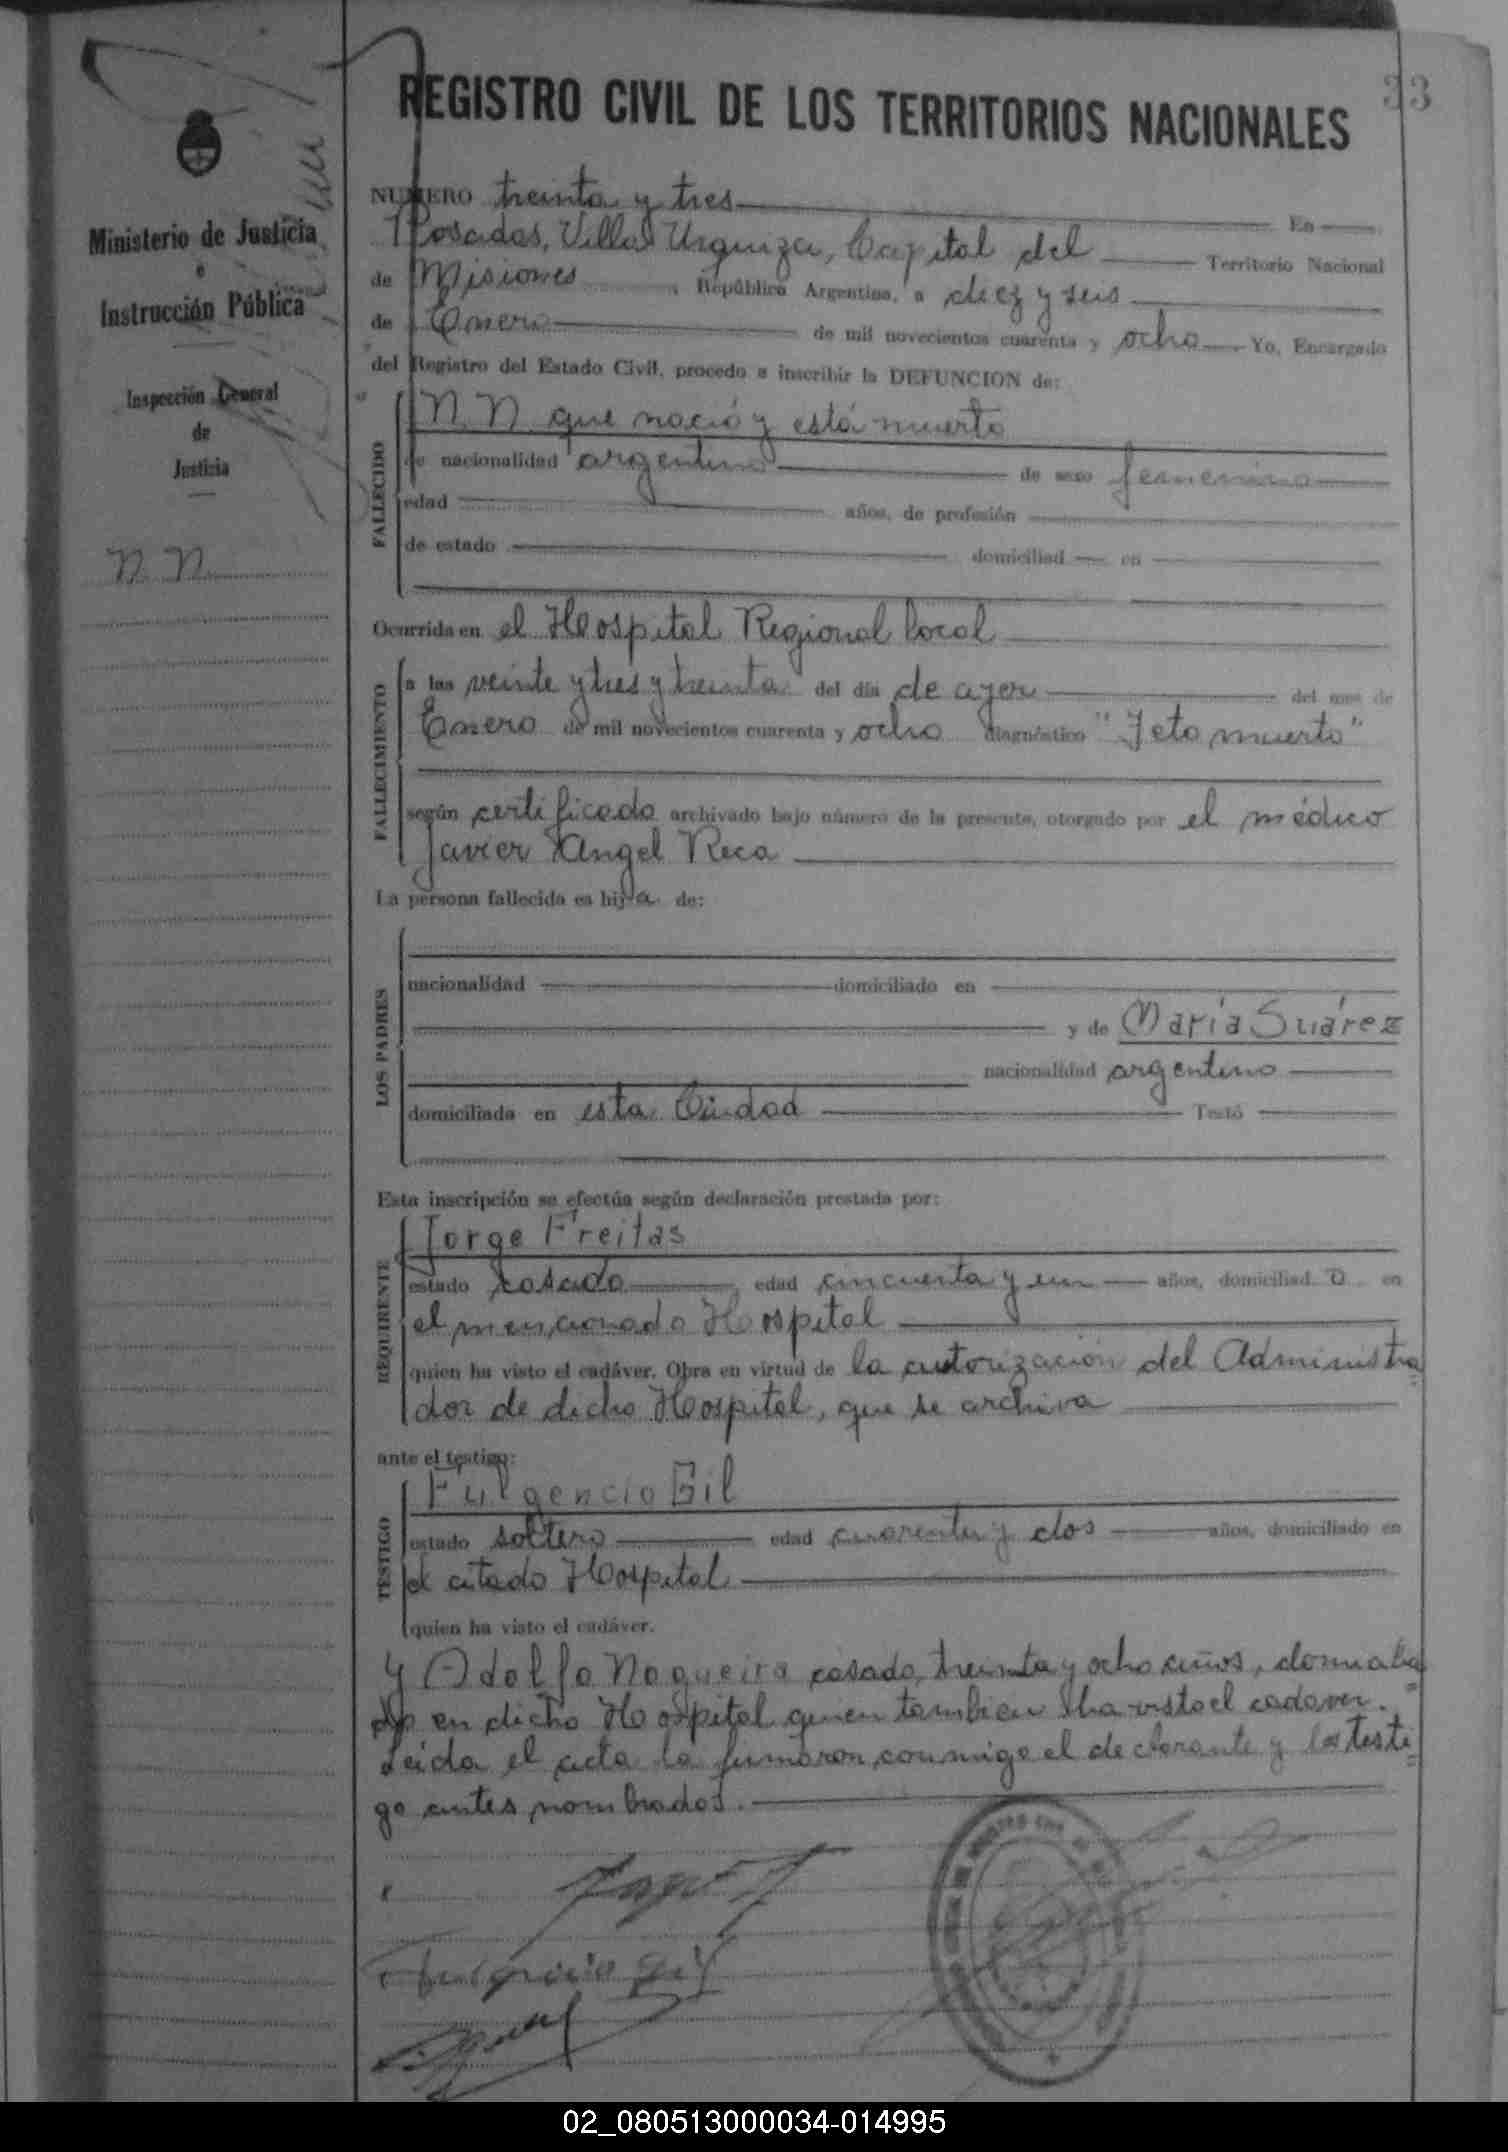 33
REGISTRO CIVIL DE LOS TERRITORIOS NACIONALES
Ministerio de Justicia
e
Instrucción Pública
Inspección General
de
Justicia
N. N.
NUMERO treinta y tres En
Posadas, Villa Urquiza, Capital del Territorio Nacional
de Misiones, República Argentina, a diez y seis
de Enero de mil novecientos cuarenta y ocho Yo, Encargado
del Registro del Estado Civil, procedo a inscribir la DEFUNCION de:
FALLECIDO
N. N. que nació y está muerto
de nacionalidad argentino de sexo femenino
edad años, de profesión
de estado domiciliad en
Ocurrida en el Hospital Regional local
FALLECIMIENTO
a las veinte y tres y treinta del día de ayer del mes de
Enero de mil novecientos cuarenta y ocho diagnóstico "Feto muerto"
según certificado archivado bajo número de la presente, otorgado por el médico
Javier Angel Reca
La persona fallecida es hija de:
LOS PADRES
nacionalidad domiciliado en
y de María Suárez
nacionalidad argentino
domiciliada en esta Ciudad Testó
Esta inscripción se efectúa según declaración prestada por:
REQUIRENTE
Jorge Freitas
estado casado, edad cincuenta y un años, domiciliad o en
el mencionado Hospital
quien ha visto el cadáver. Obra en virtud de la autorización del Administra
dor de dicho Hospital, que se archiva
ante el testigo:
TESTIGO
Fulgencio Gil
estado soltero edad cuarenta y dos años, domiciliado en
el citado Hospital
quien ha visto el cadáver.
y Adolfo Nogueira casado, treinta y ocho años, domicilia
do en dicho Hospital quien tambien ha visto el cadaver.
Leida el acta la firmaron conmigo el declarante y los testi
go antes nombrados.
Fulgencio Gil
02_080513000034-014995